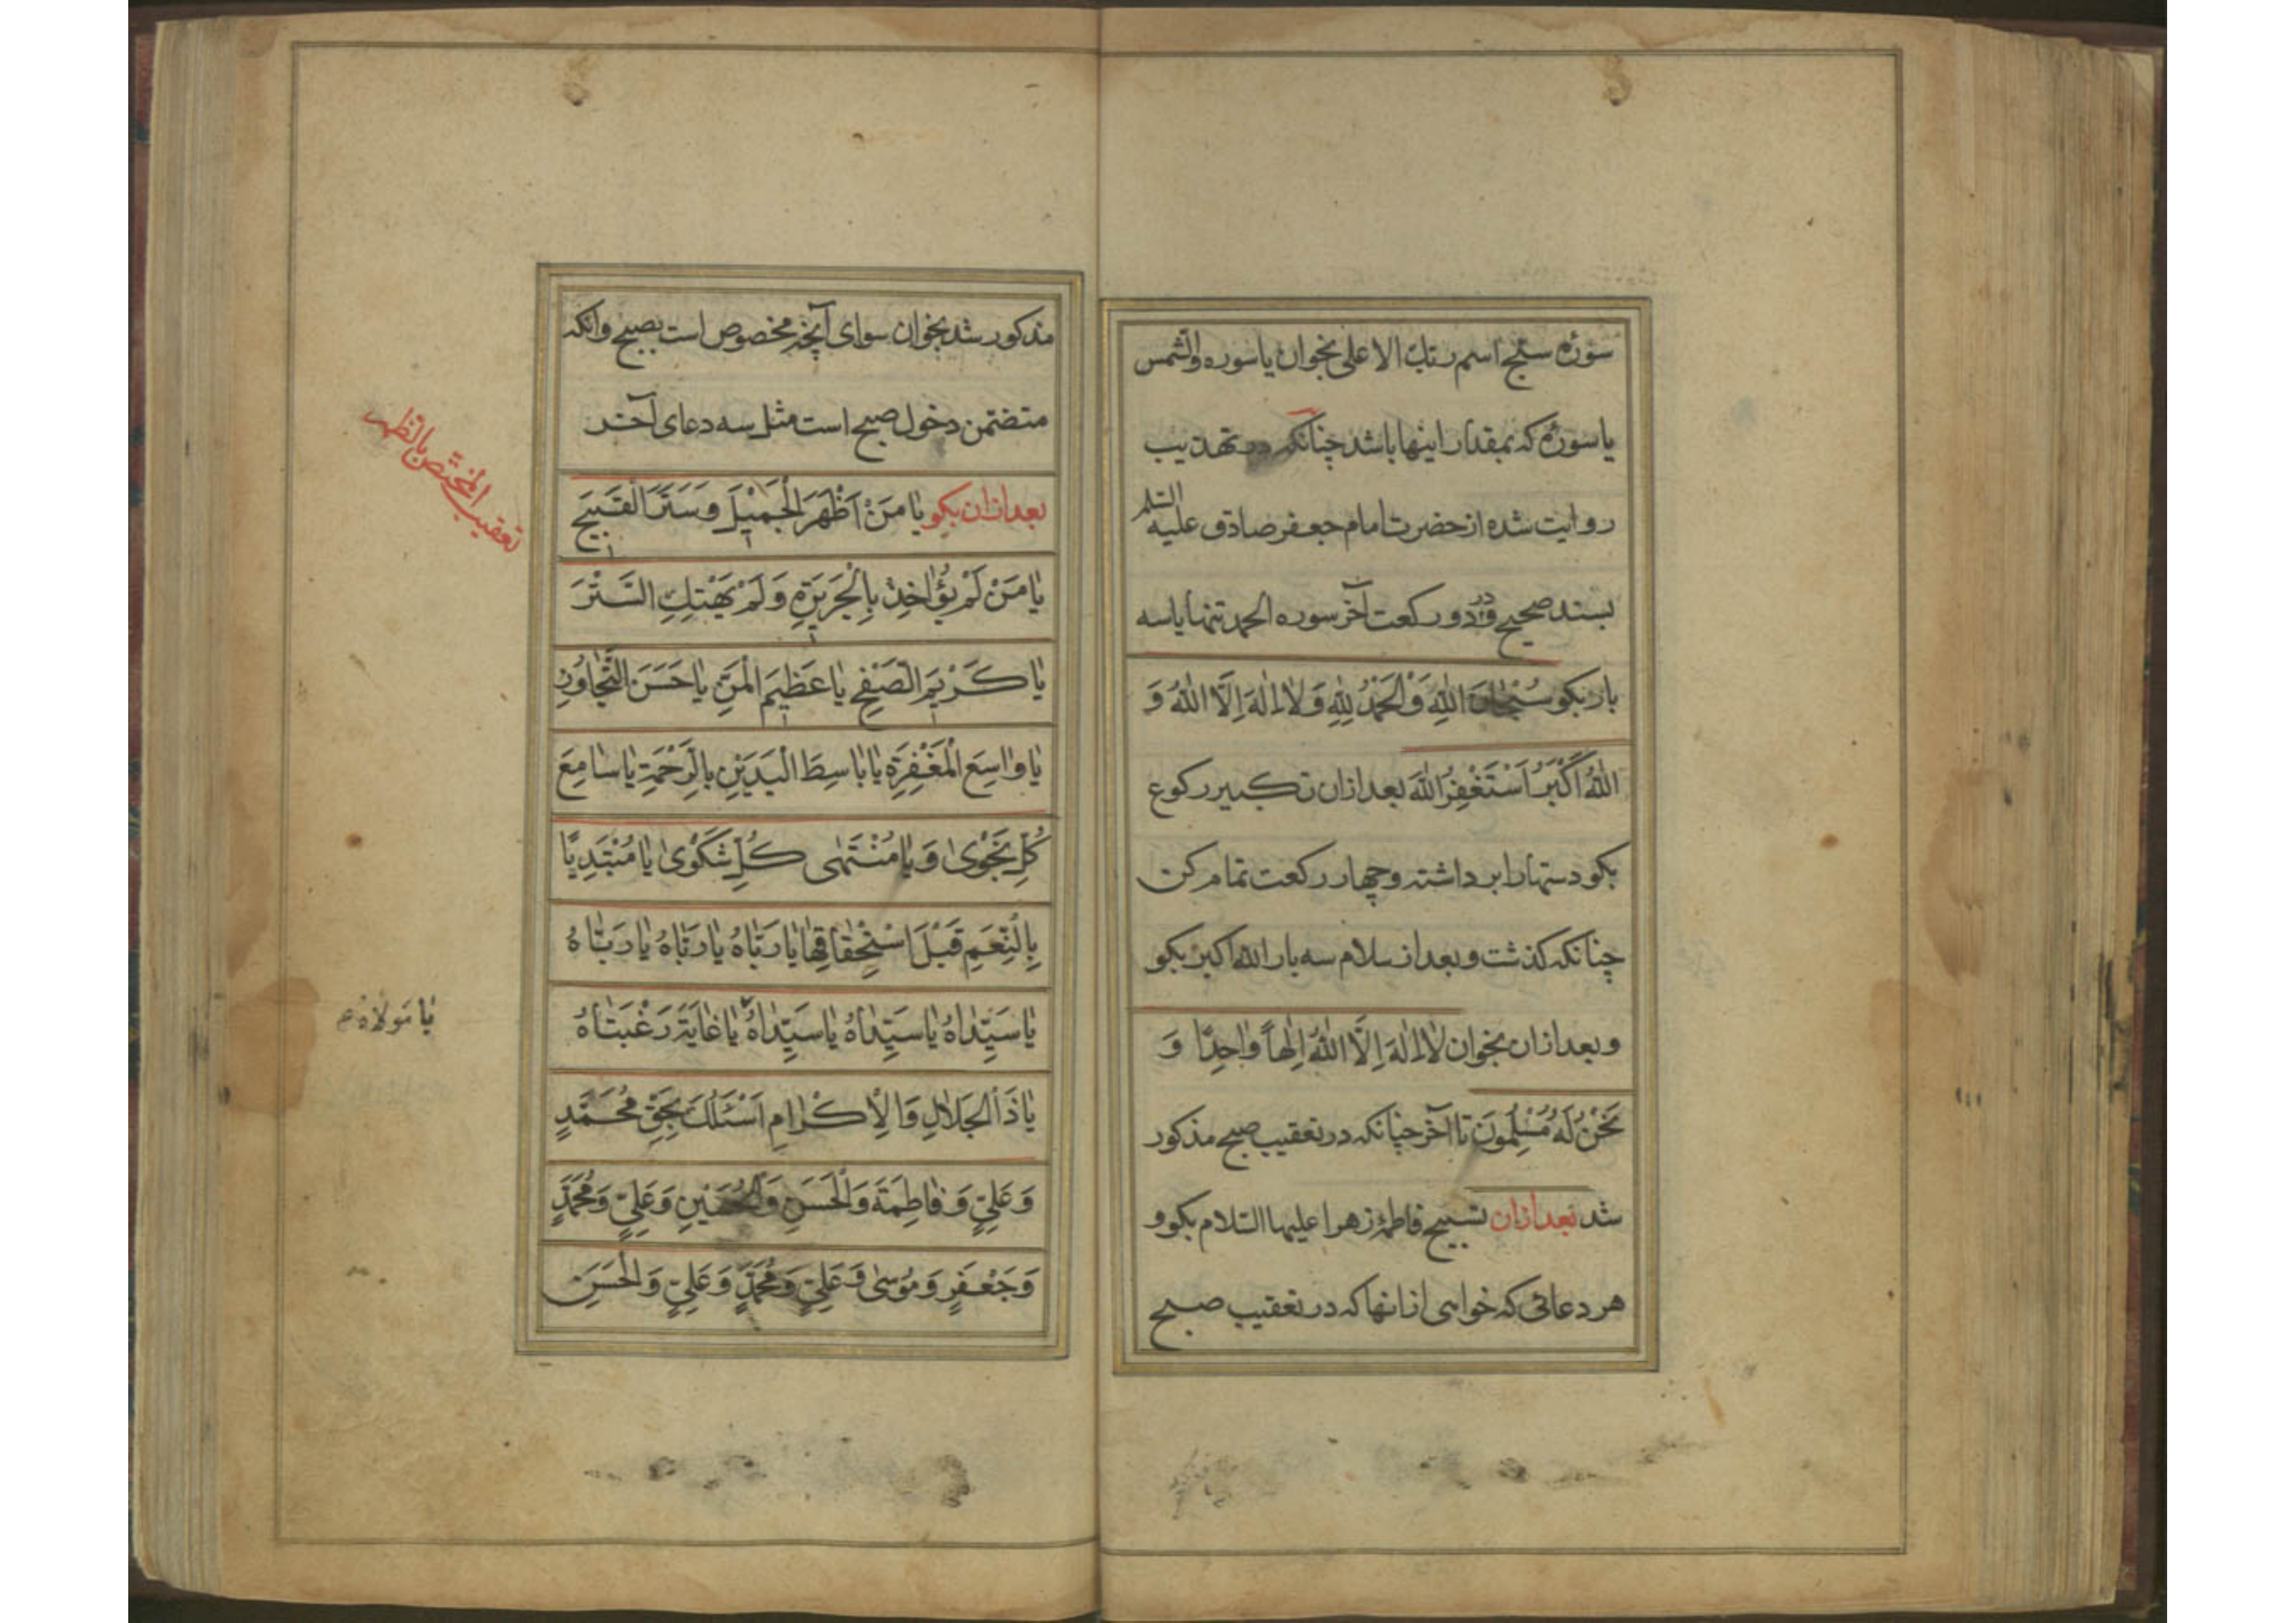 سورهٔ سبّح اسم ربّك الاعلى بخوان يا سوره والشّمس
يا سورهٔ كه بمقدار اينها باشد چنانكه در تهذيب
روايت شده از حضرت امام جعفر صادق عليه السّلم
بسند صحيح و در دو ركعت آخر سوره الحمد تنها يا سه
بار بكو سُبْحانَ اللهِ وَالْحَمْدُ لِلّهِ وَلا اِلهَ اِلَّا اللهُ وَ
اللهُ اَكْبَرُ اَسْتَغْفِرُ اللهَ بعد ازان تكبير ركوع
بكو دستها را بر داشته و چهار ركعت تمام كن
چنانكه كذشت و بعد از سلام سه بار الله اكبر بكو
و بعد ازان بخوان لا اِلهَ اِلَّا اللهُ اِلهاً واحِدًا وَ
نَحْنُ لَهُ مُسْلِمُونَ تا آخر چنانكه در تعقيب صبح مذكور
شد بعد ازان تسبيح فاطمهٔ زهرا عليها السّلام بكو و
هر دعائى كه خواهى از انها كه در تعقيب صبح
مذكور شد بخوان سواى آنچه مخصوص است بصبح و انكه
متضمّن دخول صبح است مثل سه دعاى آخر
بعد ازان بكو يا مَنْ اَظْهَرَ الْجَمِيْلَ وَسَتَرَ الْقَبِيْحَ
يا مَنْ لَمْ يُؤاخِذْ بِالْجَرِيْرَةِ وَلَمْ يَهْتِكِ السَّتْرَ
يا كَرِيْمَ الصَّفْحِ يا عَظِيْمَ الْمَنِّ يا حَسَنَ التَّجاوُزِ
يا واسِعَ الْمَغْفِرَةِ يا باسِطَ الْيَدَيْنِ بِالرَّحْمَةِ يا سامِعَ
كُلِّ نَجْوى وَ يا مُنْتَهى كُلِّ شَكْوى يا مُبْتَدِيًا
بِالنِّعَمِ قَبْلَ اسْتِحْقاقِها يا رَبّاهُ يا رَبّاهُ يا رَبّاهُ
يا سَيِّداهُ يا سَيِّداهُ يا سَيِّداهُ يا غايَةَ رَغْبَتاهُ
يا مَولاهُ
يا ذَا الْجَلالِ وَالْاِكْرامِ اَسْئَلُكَ بِحَقِّ مُحَمَّدٍ
وَعَلِيٍّ وَفاطِمَةَ وَالْحَسَنِ وَالْحُسَيْنِ وَعَلِيٍّ وَمُحَمَّدٍ
وَجَعْفَرٍ وَمُوسى وَعَلِيٍّ وَمُحَمَّدٍ وَعَلِيٍّ وَالْحَسَنِ
تعقيب المختصّ بالظهر